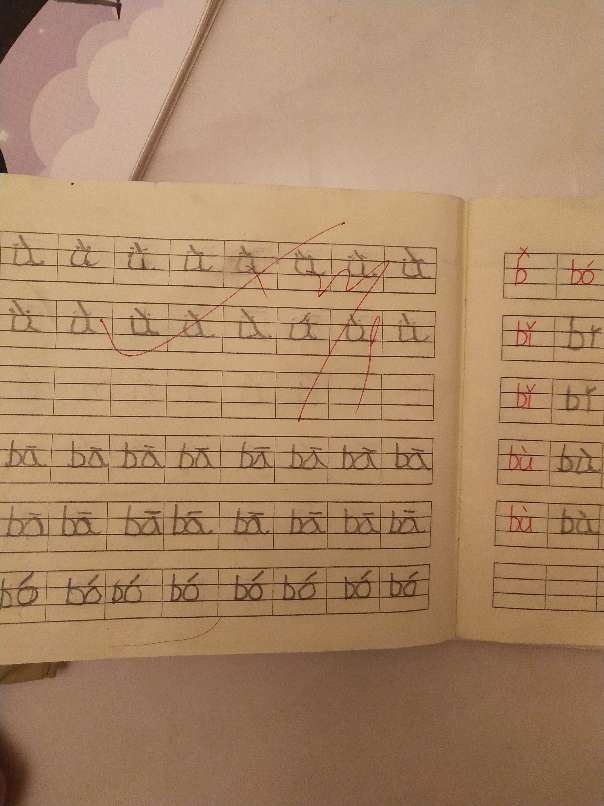 ǜ ǜ ǜ ǜ ǜ ǜ ǜ ǜ
ǜ ǜ ǜ ǜ ǜ ǜ ǜ ǜ
bā bā bā bā bā bā bā bā
bā bā bā bā bā bā bā bā
bó bó bó bó bó bó bó bó
bó
bǐ bǐ
bǐ bǐ
bù bù
bù bù